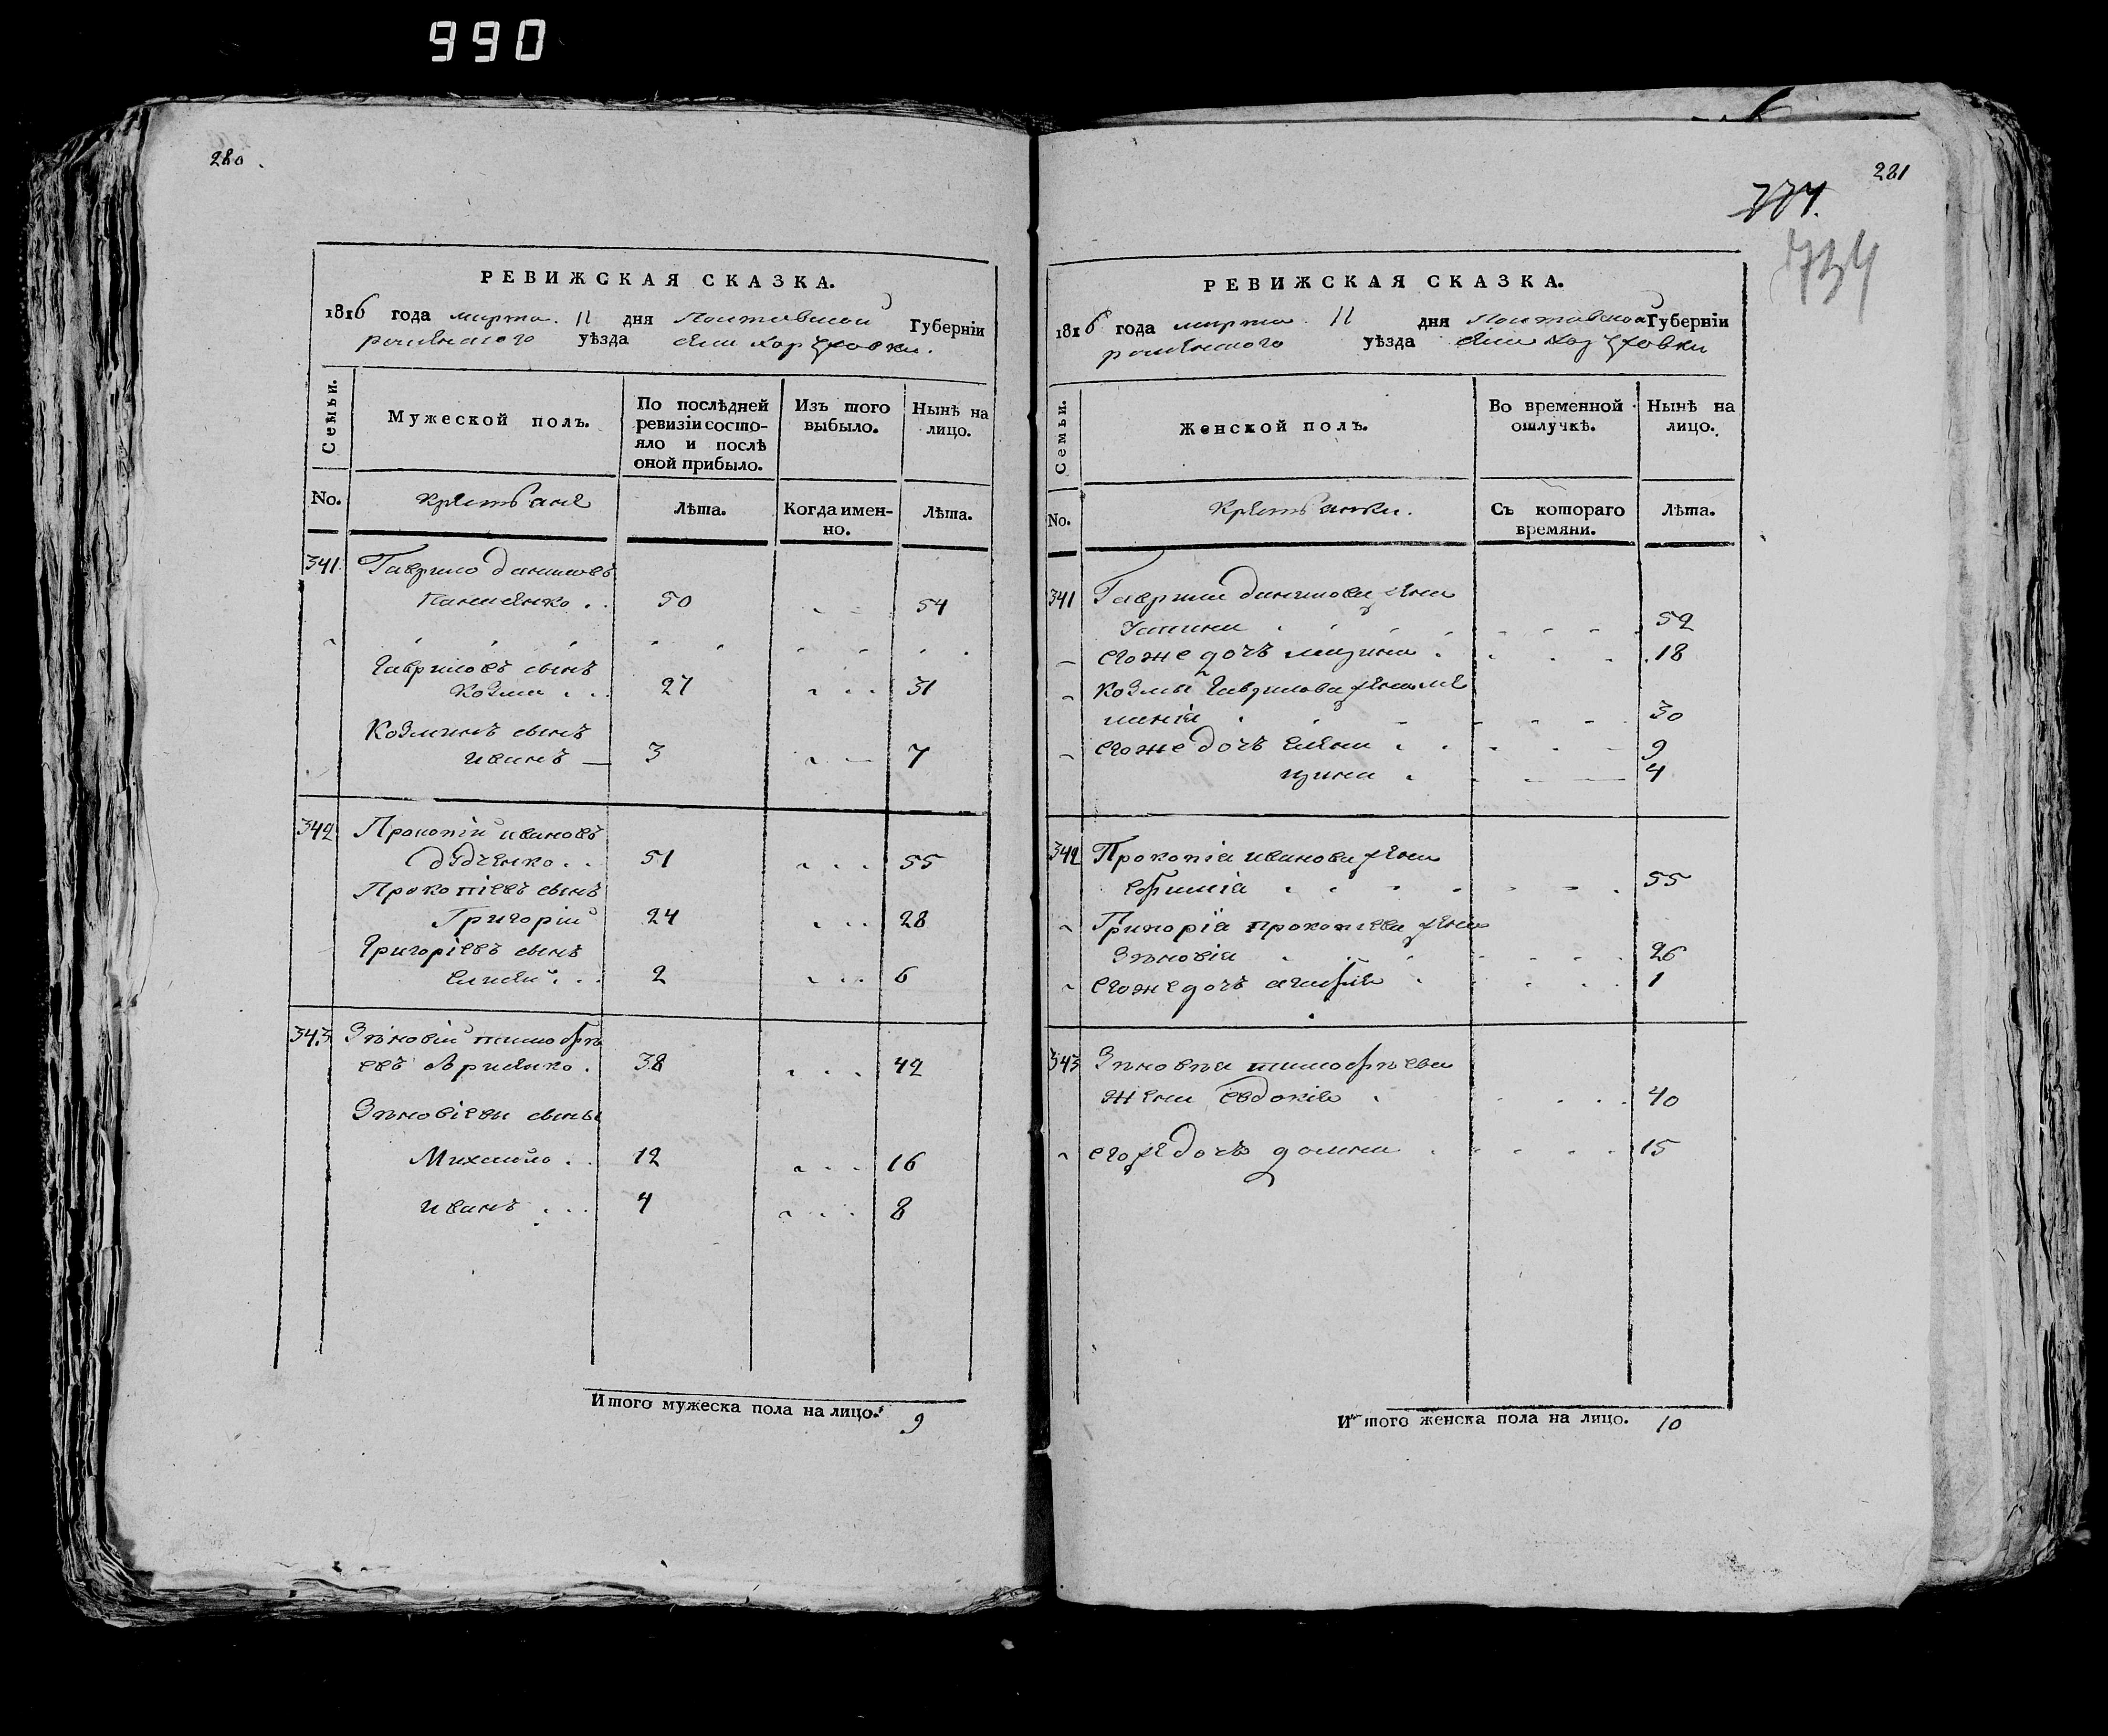 990
280
РЕВИЖСКАЯ СКАЗКА.
1816 года марта 11 дня Полтавской Губерніи
роменского уѣзда села
Семьи.
Мужеской полъ.
По послѣдней ревизіи состояло и послѣ оной прибыло.
Изъ того выбыло.
Нынѣ на лицо.
No.
крестьяне
Лѣта.
Когда именно.
Лѣта.
341 Гаврило даниловъ
50 54
Гавриловъ сынъ
Козма 27 31
Козминъ сынъ
иванъ 3 7
342 Прокопій ивановъ
дудченко 51 55
Прокопіевъ сынъ
Григорій 24 28
Григоріевъ сынъ
елисей 2 6
343 Зѣновій тимофѣ
евъ 38 42
Зѣновіевы сыны
Михайло 12 16
иванъ 4 8
Итого мужеска пола на лицо. 9
281
734
РЕВИЖСКАЯ СКАЗКА.
1816 года марта 11 дня Полтавской Губерніи
роменского уѣзда села
Семьи.
Женской полъ.
Во временной отлучкѣ.
Нынѣ на лицо.
No.
Крестьянки.
Съ котораго времяни.
Лѣта.
341 Гаврила данилова жена
52
егоже дочь марина 18
Козмы Гаврилова жена ме
ланія 30
егоже дочь елена 9
ирина 4
342 Прокопія иванова жена
ефимія 55
Григорія прокопіева жена
Зѣновія 26
егоже дочь агафія 1
343 Зѣновія тимофѣева
жена евдокія 40
егоже дочь домна 15
Итого женска пола на лицо. 10